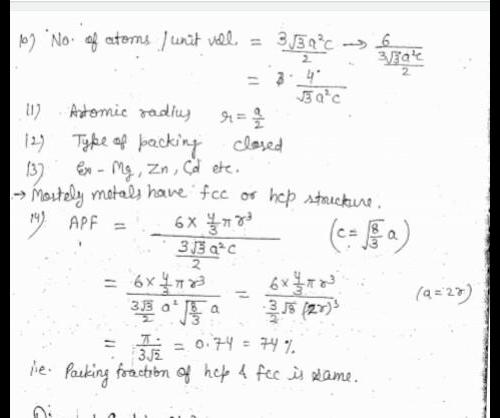 10) No. of atoms / unit vol. = 3√3 a²c / 2 → 6 / (3√3 a²c / 2)
= 3· 4 / √3 a²c
11) Atomic radius r = a/2
12) Type of packing closed
13) Ex - Mg, Zn, Cd etc.
→ Mostely metals have fcc or hcp structure.
14) APF = 6 × 4/3 π r³ / (3√3 a²c / 2) (c = √(8/3) a)
= 6 × 4/3 π r³ / (3√3/2 a² √(8/3) a) = 6 × 4/3 π r³ / (3/2 √8 (2r)³) (a = 2r)
= π / 3√2 = 0.74 = 74 %
i.e. Packing fraction of hcp & fcc is same.